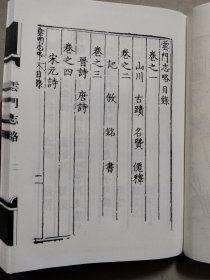 雲門志略目錄
卷之一
山川 古蹟 名賢 僊釋
卷之二
記 敘 銘 書
卷之三
晉詩 唐詩
卷之四
宋元詩
雲門志略 目錄
雲門志略